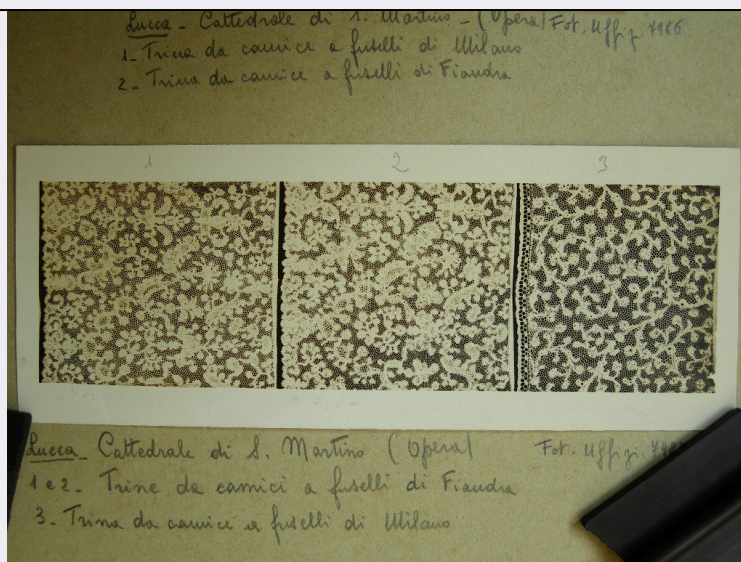 Lucca - Cattedrale di S. Martino - (Opera) Fot. Uffizi. 7986
1 - Trina da camice a fuselli di Milano
2 - Trina da camice a fuselli di Fiandra
1 2 3
Lucca - Cattedrale di S. Martino (Opera) Fot. Uffizi.
1 e 2 - Trine da camici a fuselli di Fiandra
3 - Trina da camice a fuselli di Milano